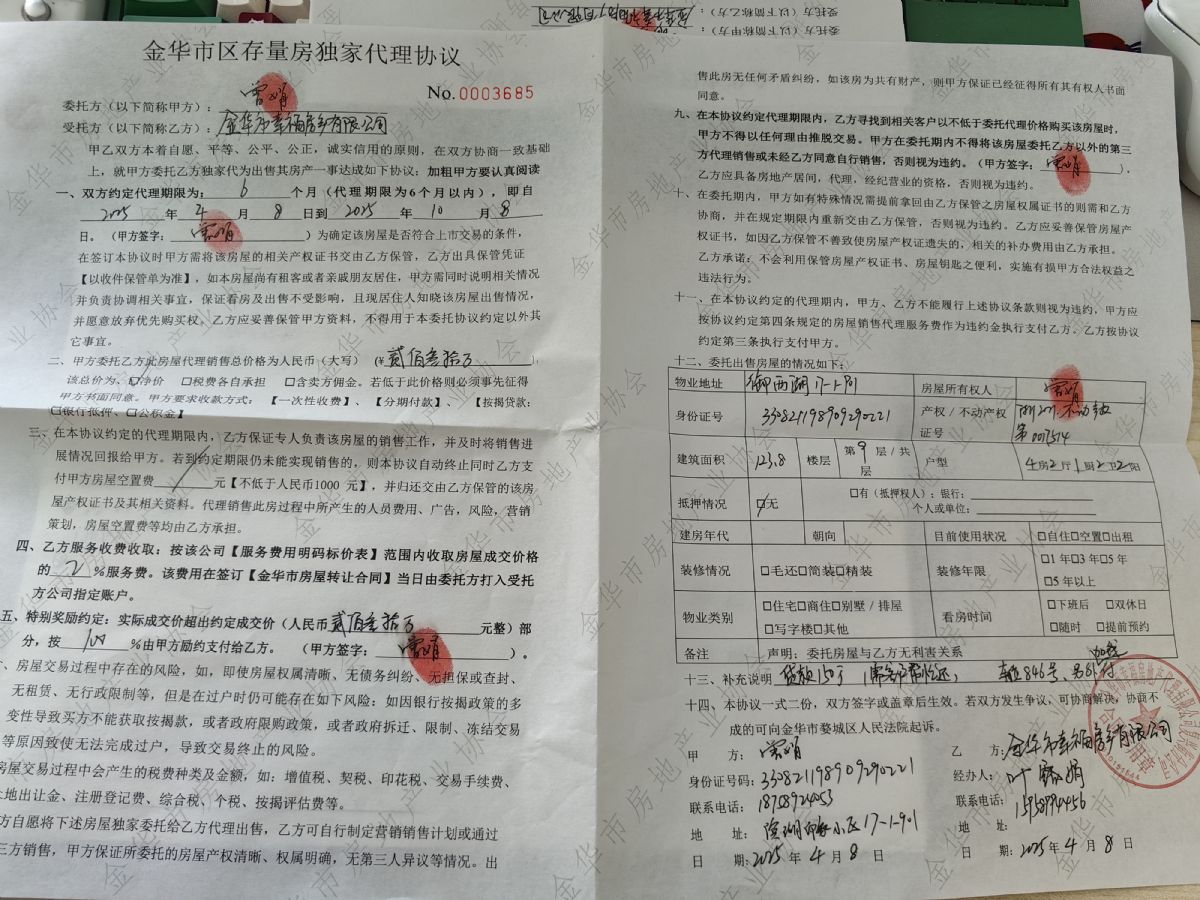 金华市区存量房独家代理协议
No.0003685
委托方（以下简称甲方）：
受托方（以下简称乙方）：金华市幸福房乡有限公司
甲乙双方本着自愿、平等、公平、公正，诚实信用的原则，在双方协商一致基础
上，就甲方委托乙方独家代为出售其房产一事达成如下协议：加粗甲方要认真阅读
一、双方约定代理期限为：6个月（代理期限为6个月以内），即自
2025年4月8日到2025年10月8
日。（甲方签字：）为确定该房屋是否符合上市交易的条件，
在签订本协议时甲方需将该房屋的相关产权证书交由乙方保管，乙方出具保管凭证
【以收件保管单为准】，如本房屋尚有租客或者亲戚朋友居住，甲方需同时说明相关情况
并负责协调相关事宜，保证看房及出售不受影响，且现居住人知晓该房屋出售情况，
并愿意放弃优先购买权。乙方应妥善保管甲方资料，不得用于本委托协议约定以外其
它事宜。
二、甲方委托乙方此房屋代理销售总价格为人民币（大写）（￥贰佰叁拾万）；
该总价为、☑净价 □税费各自承担 □含卖方佣金。若低于此价格则必须事先征得
甲方书面同意。甲方要求收款方式：【一次性收费】、【分期付款】、【按揭贷款：
□银行抵押、□公积金】
三、在本协议约定的代理期限内，乙方保证专人负责该房屋的销售工作，并及时将销售进
展情况回报给甲方。若到约定期限仍未能实现销售的，则本协议自动终止同时乙方支
付甲方房屋空置费 / 元【不低于人民币1000 元】，并归还交由乙方保管的该房
屋产权证书及其相关资料。代理销售此房过程中所产生的人员费用、广告，风险，营销
策划，房屋空置费等均由乙方承担。
四、乙方服务收费收取：按该公司【服务费用明码标价表】范围内收取房屋成交价格
的2%服务费。该费用在签订【金华市房屋转让合同】当日由委托方打入受托
方公司指定账户。
五、特别奖励约定：实际成交价超出约定成交价（人民币贰佰叁拾万元整）部
分，按100%由甲方励约支付给乙方。（甲方签字：）。
、房屋交易过程中存在的风险，如，即使房屋权属清晰、无债务纠纷、无担保或查封、
无租赁、无行政限制等，但是在过户时仍可能存在如下风险：如因银行按揭政策的多
变性导致买方不能获取按揭款，或者政府限购政策，或者政府拆迁、限制、冻结交易
等原因致使无法完成过户，导致交易终止的风险。
房屋交易过程中会产生的税费种类及金额，如：增值税、契税、印花税、交易手续费、
土地出让金、注册登记费、综合税、个税、按揭评估费等。
方自愿将下述房屋独家委托给乙方代理出售，乙方可自行制定营销销售计划或通过
三方销售，甲方保证所委托的房屋产权清晰、权属明确，无第三人异议等情况。出
售此房无任何矛盾纠纷，如该房为共有财产，则甲方保证已经征得所有其有权人书面
同意。
九、在本协议约定代理期限内，乙方寻找到相关客户以不低于委托代理价格购买该房屋时，
甲方不得以任何理由推脱交易。甲方在委托期内不得将该房屋委托乙方以外的第三
方代理销售或未经乙方同意自行销售，否则视为违约。（甲方签字：），
乙方应具备房地产居间，代理，经纪营业的资格，否则视为违约。
十、在委托期内，甲方如有特殊情况需提前拿回由乙方保管之房屋权属证书的则需和乙方
协商，并在规定期限内重新交由乙方保管，否则视为违约。乙方应妥善保管房屋产
权证书，如因乙方保管不善致使房屋产权证遗失的，相关的补办费用由乙方承担。
乙方承诺：不会利用保管房屋产权证书、房屋钥匙之便利，实施有损甲方合法权益之
违法行为。
十一、在本协议约定的代理期内，甲方、乙方不能履行上述协议条款则视为违约，甲方应
按协议约定第四条规定的房屋销售代理服务费作为违约金执行支付乙方。乙方按协议
约定第三条执行支付甲方。
十二、委托出售房屋的情况如下：
物业地址 御西湖17-1-901 房屋所有权人
身份证号 330821198909290221 产权／不动产权证号 第0017514
建筑面积 123.8 楼层 第9层／共层 户型 4房2厅1厨2卫2阳
抵押情况 ☑无 □有（抵押权人）：银行：
个人或单位：
建房年代 朝向 目前使用状况 □自住□空置□出租
装修情况 □毛还□简装□精装 装修年限 □1年□3年□5年
□5年以上
物业类别 □住宅□商住□别墅／排屋 看房时间 □下班后 □双休日
□写字楼□其他 □随时 □提前预约
备注 声明：委托房屋与乙方无利害关系
十三、补充说明 贷款150万（需客户帮忙还， 车位846号、另外付
十四、本协议一式二份，双方签字或盖章后生效。若双方发生争议，可协商解决，协商不
成的可向金华市婺城区人民法院起诉。
甲 方：
乙 方：金华市幸福房乡有限公司
身份证号码：330821198909290221
经办人：
联系电话：18758924053
联系电话：15958994456
地 址：17-1-901
地 址：
日 期：2025年4月8日
日 期：2025年4月8日
受托方（以下简称乙方）：
委托方（以下简称甲方）：